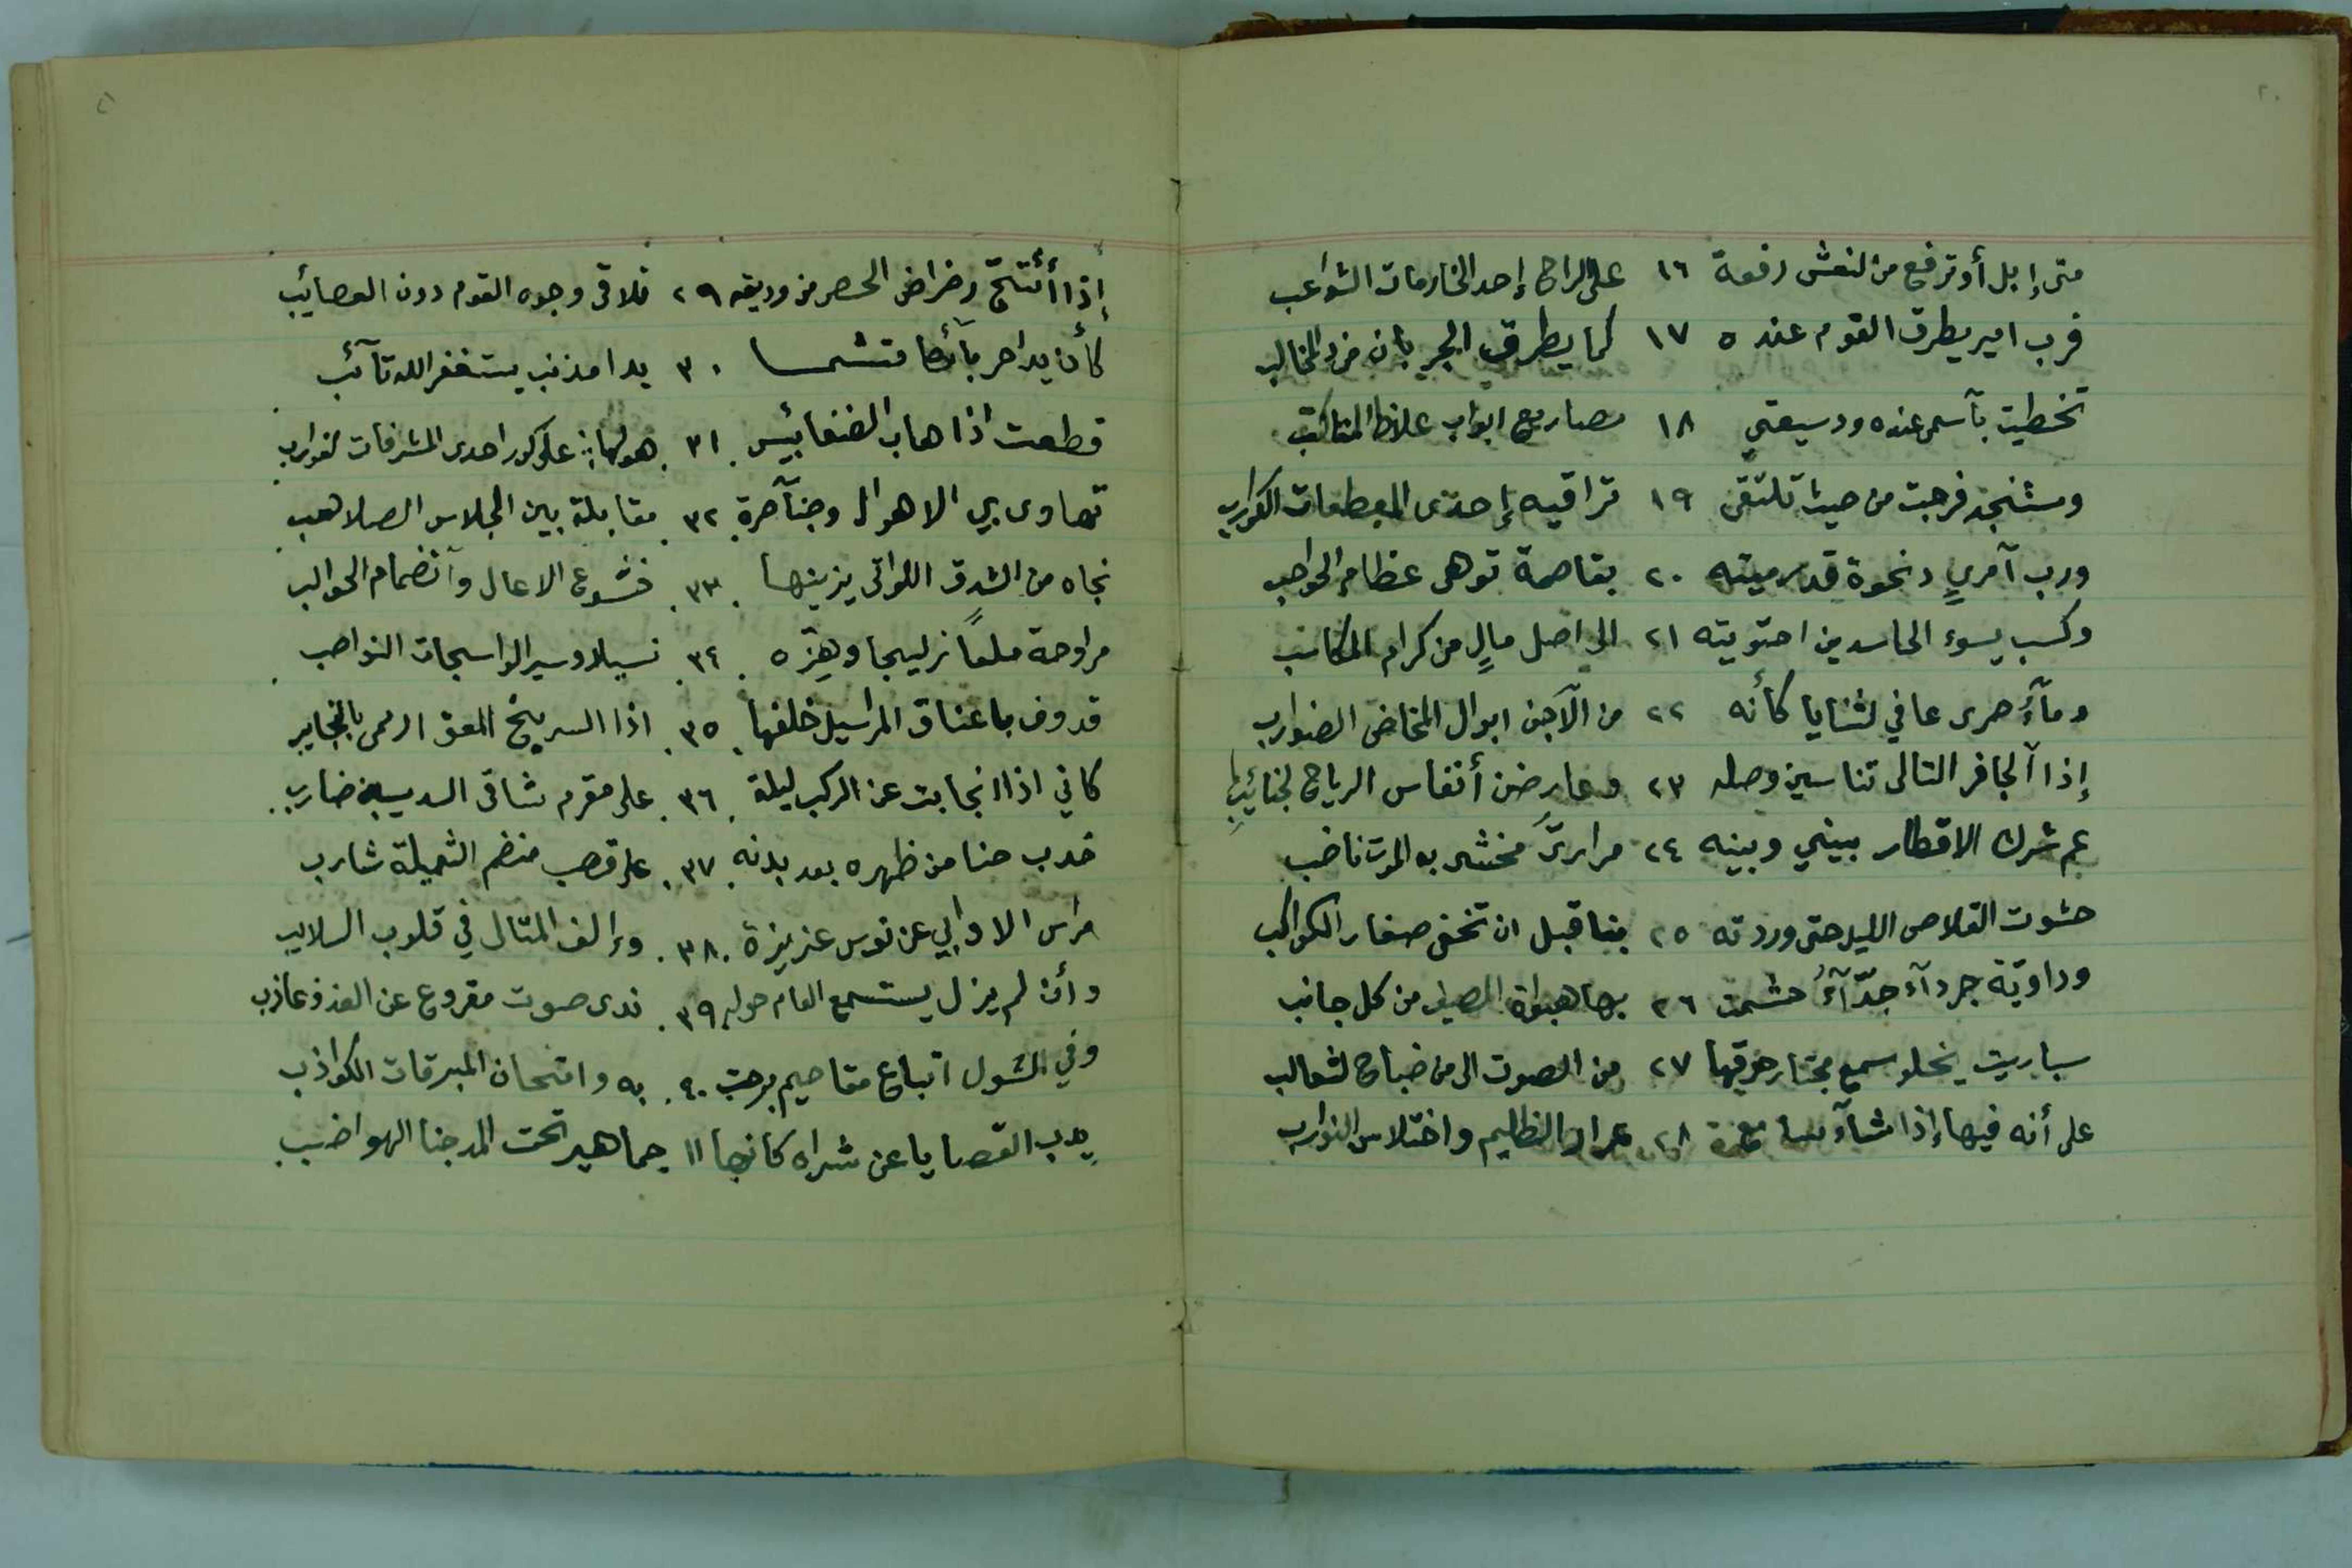 متى إبل أو ترفع من لنعش رفعة ١٦ على الراح إحد الخارمات الشواعب
فرب امير يطرق القوم عنده ١٧ كما يطرق الجربان من د المخالب
تخطيت بآسمى عنده ودسيعتي ١٨ مصاريع ابواب غلاظ المناكب
ومستنجد فرجت من حيث تلتقى ١٩ تراقيه إحدى المعطمات الكوارب
ورب آمريٍ د نخوة قد رميته ٢٠ بقاصمة توهى عظام الحواجب
وكسب يسوء الحاسدين احتويته ٢١ الى اصل مالٍ من كرام المكاسب
ومآءٍ صرى عافي لثنايا كأنه ٢٢ من الآجن ابوال المخاض الضوارب
إذا آلجافر التالى تناسين وصله ٢٣ وعارضن أنفاس الرياح لجنائيب
عم شرك الاقطار بيني وبينه ٢٤ مراريّ مخشى به الموت ناضب
حشوت القلاص الليل حتى وردته ٢٥ بنا قبل ان تخفى صغار الكواكب
وداويّة جردآء جدّآءُ حشمت ٢٦ بها هبوات الصيف من كل جانب
سباريت يخلو سمع مجتاز خرقها ٢٧ من الصوت الى من ضباح لثعالب
على أنه فيها إذا شآء سامع ٢٨ عرار الظليم واختلاس النوازب
٢٠
إذا أئتتجّ رضراض الحصر من وديقه ٢٩ فلاقى وجوه القوم دون العصائيب
كأن يدا حربآئها متشمسا ٣٠ يدا مذنب يستغفر الله تآئب
قطعت اذا هاب الضغابيس ٣١ هولها: على كور احدى المشرفات لغوارب
تهاوى بي الاهوال وجنآحرة ٣٢ مقابلة بين الجلاس الصلاهب
نجاه من الشدق اللواتى يزينها ٣٣ خشوع الاعال وآنضمام الحوالب
مراوحة ملعاً زليجا وهزّه ٣٤ نسيلا وسير الواسجات النواصب
قدوف باعناق المراسيل خلفها ٣٥ اذا السربخ المعق ارتمى بالنجايب
كاني اذا انجابت عن الركب ليلة ٣٦ على مقرم شاقى السديسين ضارب
خدب حنا من ظهره بعد بدنه ٣٧ على قصب منضم الثميلة شازب
مراس الاوابي عن نوس عزيزة ٣٨ وإلف المتال في قلوب السلايب
وأن لم يزل يستسمع العام حوله ٣٩ ندى صوت مقروع عن العذف عاذب
وفي الشول اتباع مقاحيم برحت ٤٠ به وامتحان المبرقات الكواذب
يدب القصايا عن شراه كانها ١١ جماهير تحت المدجنا الهواضب